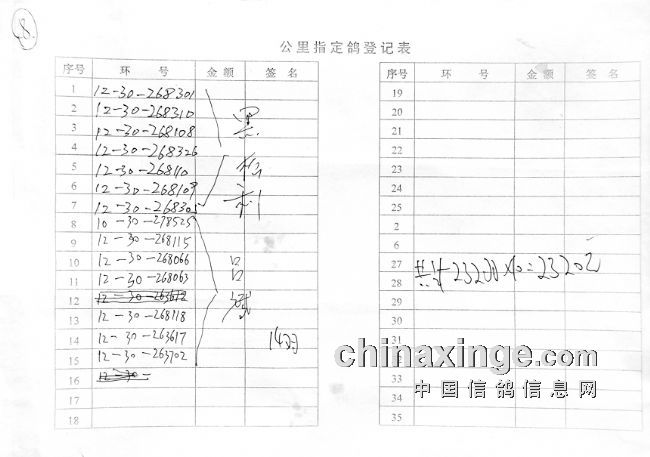 8.
公里指定鸽登记表
序号 环 号 金额 签 名
1 12-30-268301
2 12-30-268310
3 12-30-268108
4 12-30-268326
5 12-30-268110
6 12-30-268109
7 12-30-268305
8 10-30-278525
9 12-30-268115
10 12-30-268066
11 12-30-268063
12 12-30-263612
13 12-30-268118
14 12-30-263617
15 12-30-263702
16 12-30-
17
18
14羽
序号 环 号 金额 签 名
19
20
21
22
23
24
25
2
6
27
28
29
31
33
35
共计232羽×10=2320元
chinaxinge.com
中国信鸽信息网